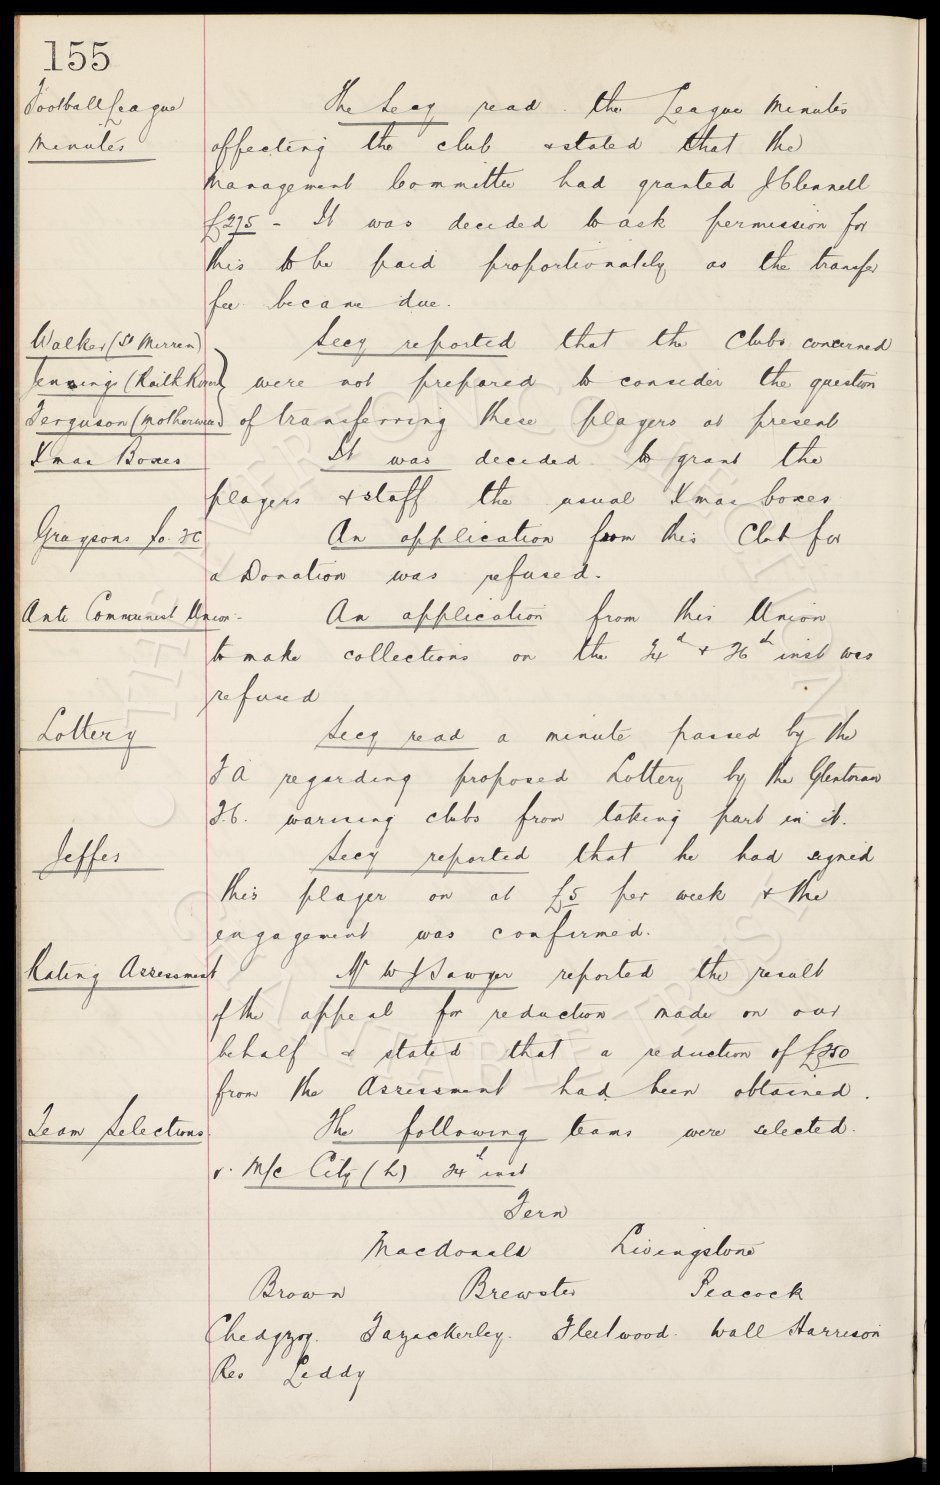 155
Football League The Secy read the League Minutes
Minutes affecting the club & stated that the
Management Committee had granted J Clennell
£275 - It was decided to ask permission for
this to be paid proportionately as the transfer
fee became due.
Walker (St Mirren) Secy reported that the Clubs concerned
Jennings (Raith Rovers) were not prepared to consider the question
Ferguson (Motherwell) of transferring these players at present
Xmas Boxes It was decided to grant the
players & staff the usual Xmas boxes
Graysons Lo. FC An application from this Club for
a Donation was refused.
Anti Communist Union - An application from this Union
to make collections on the 24th & 26th inst was
refused
Lottery Secy read a minute passed by the
F A regarding proposed Lottery by the Glentoran
F.C. warning clubs from taking part in it.
Jeffes Secy reported that he had signed
this player on at £5 per week & the
engagement was confirmed.
Rating Assessment Mr W J Sawyer reported the result
of the appeal for reduction made on our
behalf & stated that a reduction of £350
from the Assessment had been obtained.
Team Selections. The following teams were selected.
v. M/c City (h) 24th inst
Fern
Macdonald Livingstone
Brown Brewster Peacock
Chedgzoy. Fazackerley. Fleetwood. Wall Harrison
Res Leddy